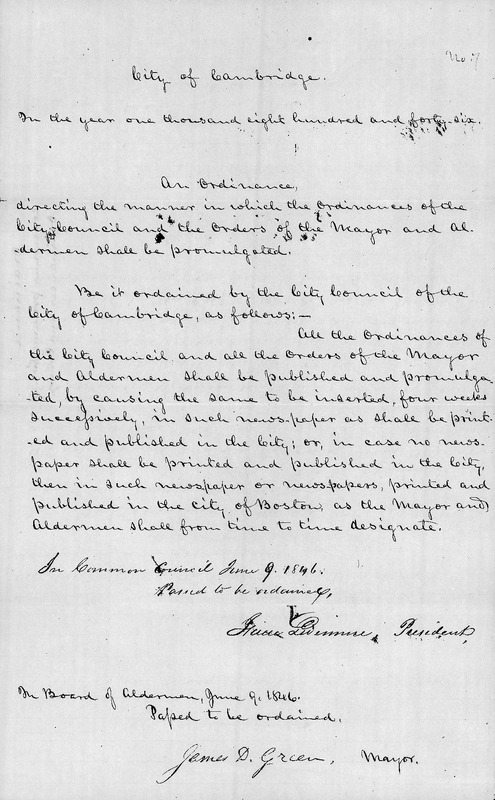 No. 7
City of Cambridge.
In the year one thousand eight hundred and forty-six.
An Ordinance,
directing the manner in which the Ordinances of the
City Council and the Orders of the Mayor and Al-
dermen shall be promulgated.
Be it ordained by the City Council of the
City of Cambridge, as follows:—
All the Ordinances of
the City Council, and all the Orders of the Mayor
and Aldermen shall be published and promulga-
ted, by causing the same to be inserted, four weeks
successively, in such news-paper as shall be print-
ed and published in the City; or, in case no news-
paper shall be printed and published in the City,
then in such newspaper or newspapers, printed and
published in the city of Boston, as the Mayor and
Aldermen shall from time to time designate.
In Common Council June 9. 1846.
Passed to be ordained,
Isaac Livermore, President,
In Board of Aldermen, June 9. 1846.
Passed to be ordained.
James D. Green, Mayor.